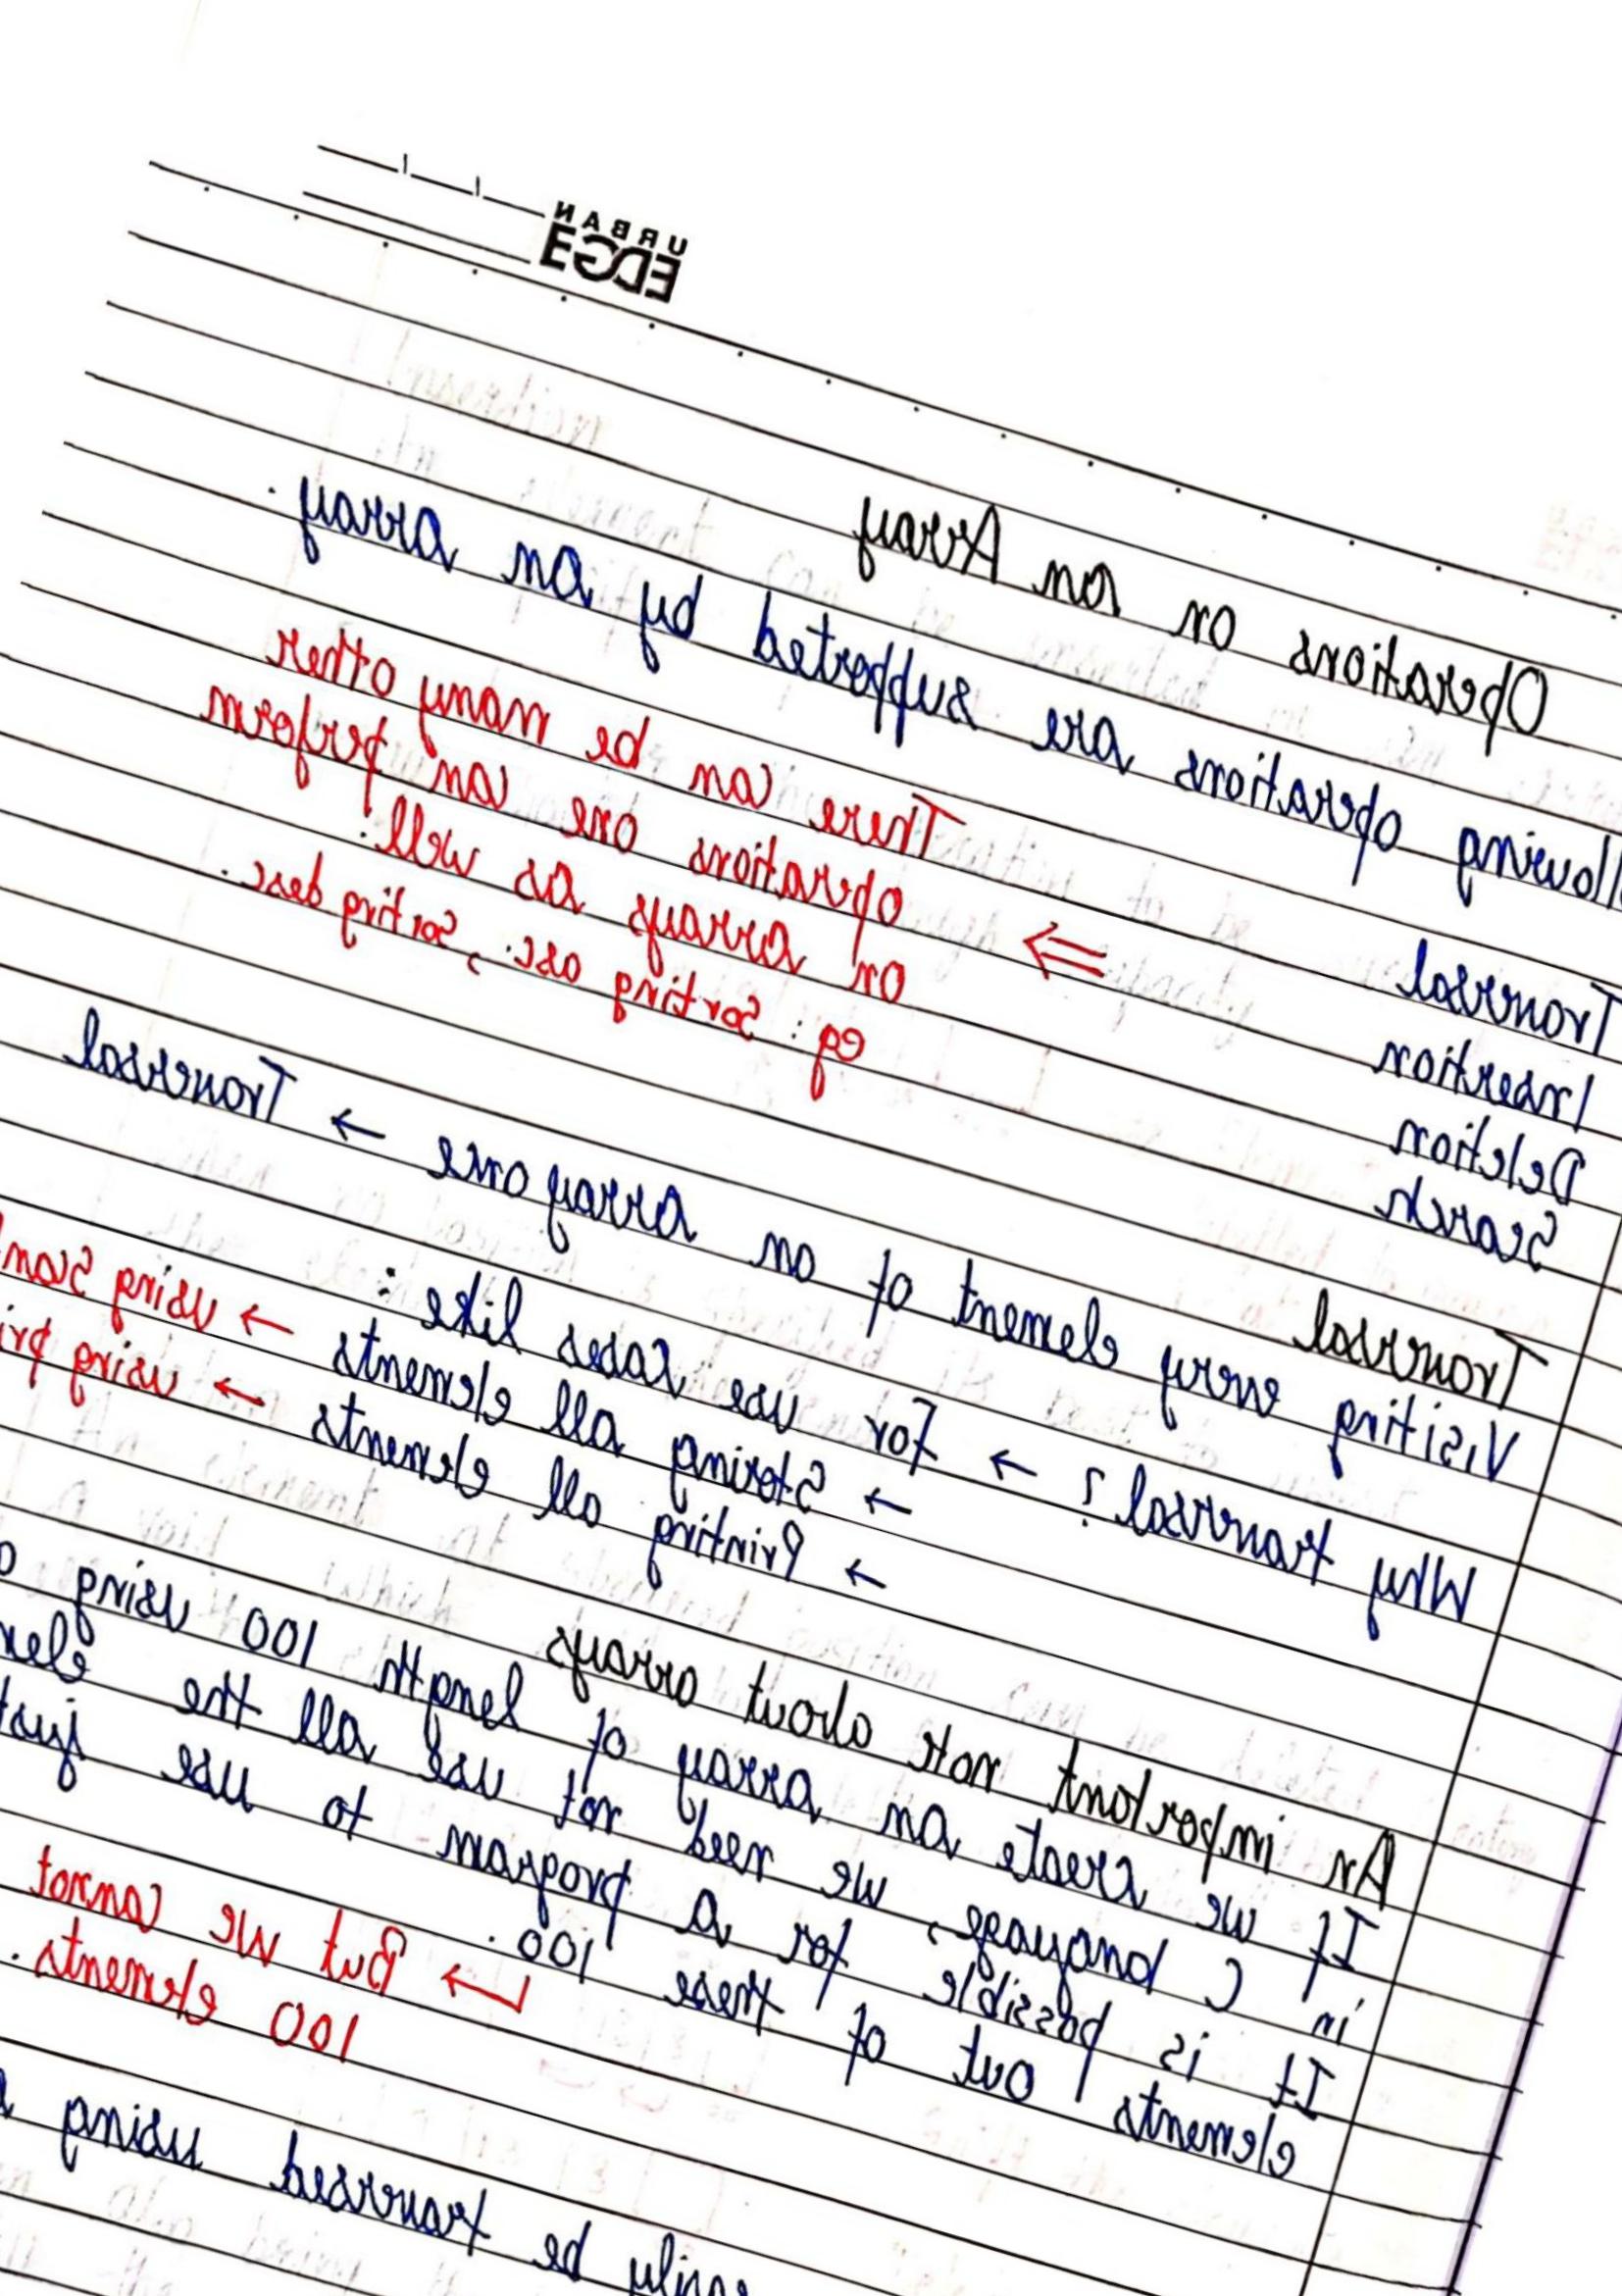 URBAN
EDGE
Operations on an Array
llowing operations are supported by an array.
Traversal ⇒ There can be many other
Insertion operations one can perform
Deletion on arrays as well.
Search eg: Sorting asc., sorting desc.
Traversal
Visiting every element of an array once → Traversal
Why traversal? → For use cases like:
→ Storing all elements → using Scan
→ Printing all elements → using pri
An important note about arrays
If we create an array of length 100 using a
in C language, we need not use all the elem
It is possible for a program to use just
elements out of these 100.
↳ But we cannot
100 elements.
easily be traversed using